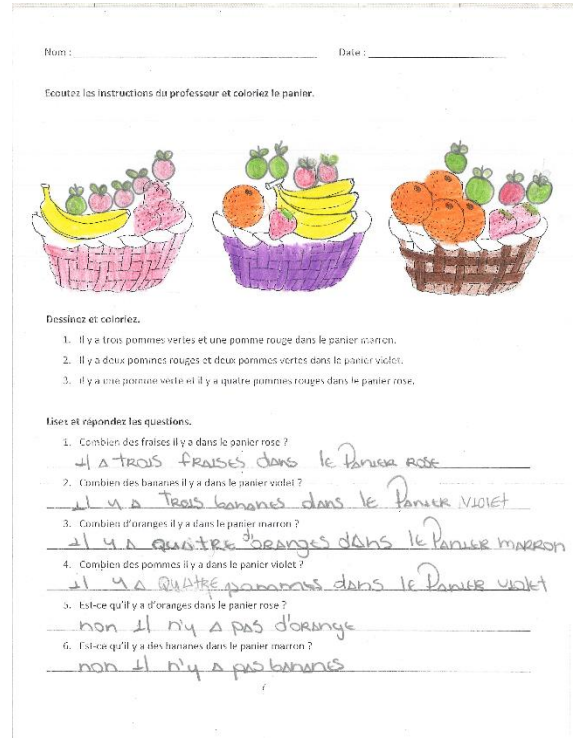 Nom :
Date :
Ecoutez les instructions du professeur et coloriez le panier.
Dessinez et coloriez.
1. Il y a trois pommes vertes et une pomme rouge dans le panier marron.
2. Il y a deux pommes rouges et deux pommes vertes dans le panier violet.
3. Il y a une pomme verte et il y a quatre pommes rouges dans le panier rose.
Lisez et répondez les questions.
1. Combien des fraises il y a dans le panier rose ?
Il A TROIS FRAISES dans le PANIER ROSE
2. Combien des bananes il y a dans le panier violet ?
il y A TROIS bananes dans le PANIER VIOLET
3. Combien d'oranges il y a dans le panier marron ?
Il y A QUATRE d'ORANGES dans le PANIER MARRON
4. Combien des pommes il y a dans le panier violet ?
il y A QUATRE pommes dans le PANIER violet
5. Est-ce qu'il y a d'oranges dans le panier rose ?
non Il n'y A PAS d'ORANGE
6. Est-ce qu'il y a des bananes dans le panier marron ?
non Il n'y A PAS bananes